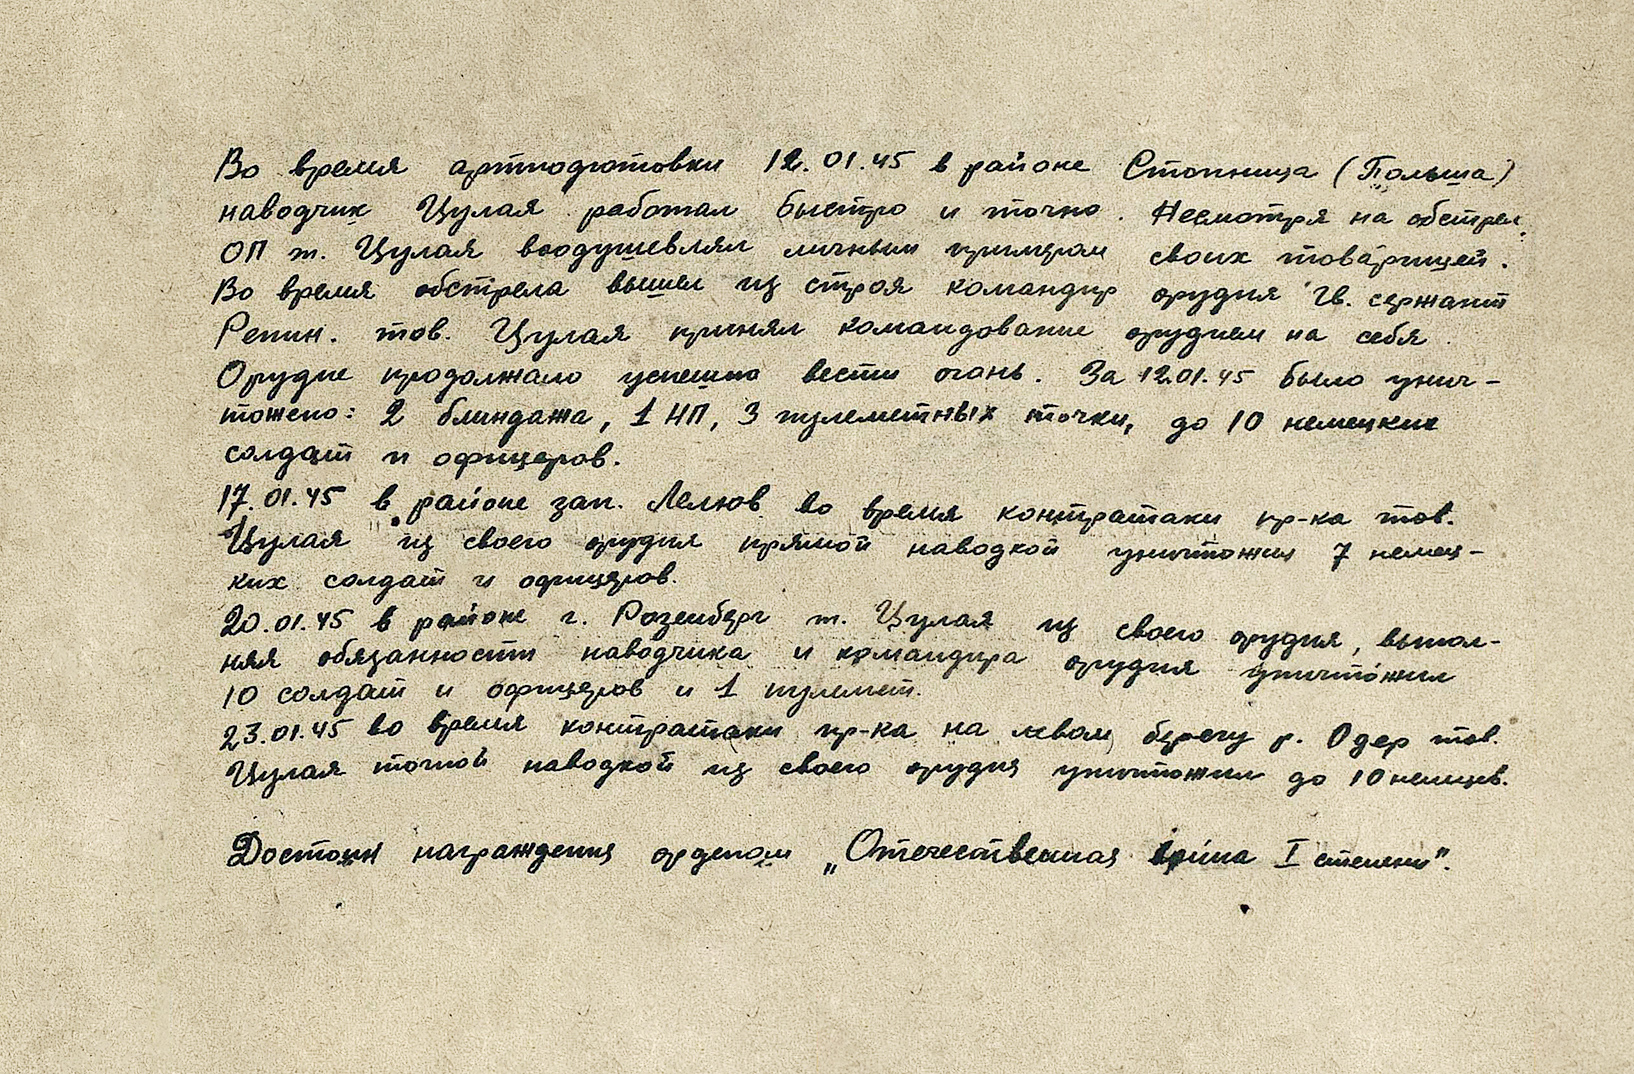 Во время артподготовки 12.01.45 в районе Стопница (Польша)
наводчик Цулая работал быстро и точно. Несмотря на обстрел
ОП т. Цулая воодушевлял личным примером своих товарищей.
Во время обстрела вышел из строя командир орудия Гв. сержант
Репин. тов. Цулая принял командование орудием на себя.
Орудие продолжало успешно вести огонь. За 12.01.45 было унич-
тожено: 2 блиндажа, 1 НП, 3 пулеметных точки, до 10 немецких
солдат и офицеров.
17.01.45 в районе зап. Лелюв во время контратаки пр-ка тов.
Цулая из своего орудия прямой наводкой уничтожил 7 немец-
ких солдат и офицеров.
20.01.45 в районе г. Розенберг т. Цулая из своего орудия, выпол-
няя обязанности наводчика и командира орудия уничтожил
10 солдат и офицеров и 1 пулемет.
23.01.45 во время контратаки пр-ка на левом берегу р. Одер тов.
Цулая точной наводкой из своего орудия уничтожил до 10 немцев.
Достоин награждения орденом „Отечественная I степени".